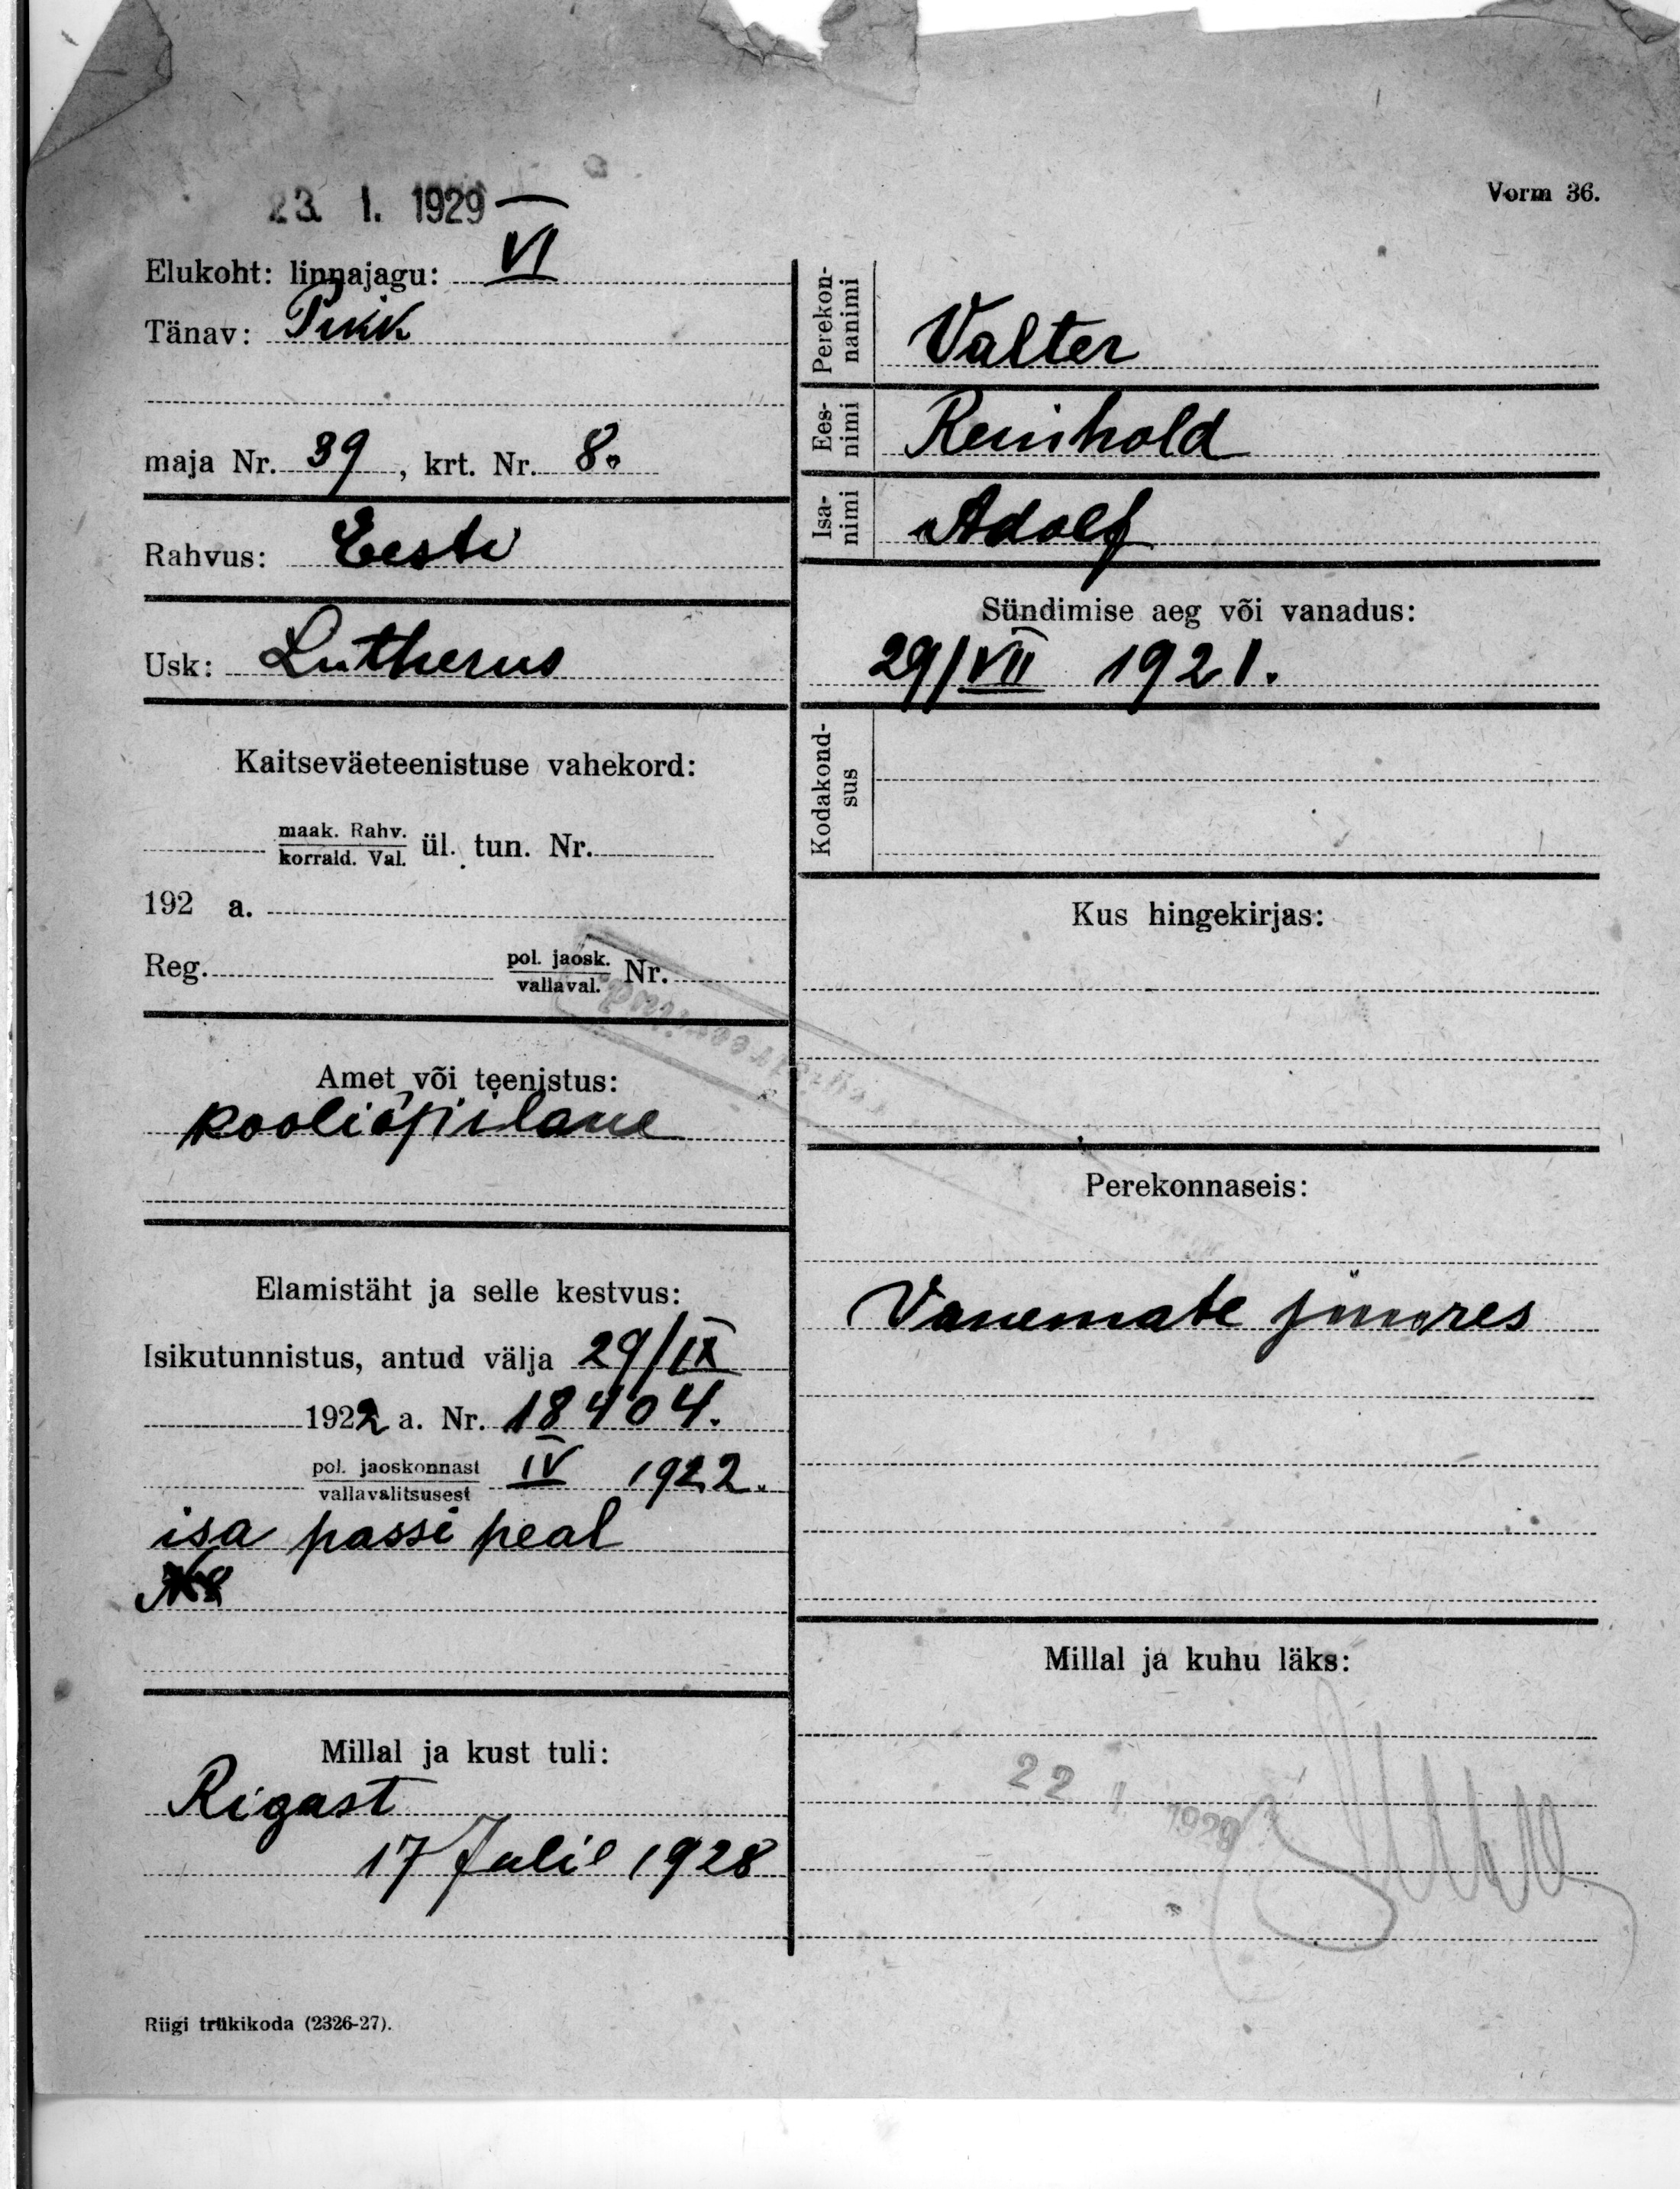 23. I. 1929
Vorm 36.
Elukoht: linnajagu: VI
Tänav: Pikk
maja Nr. 39, krt. Nr. 8.
Rahvus: Eesti
Usk: Lutherus
Kaitseväeteenistuse vahekord:
maak. Rahv.
korrald. Val. ül. tun. Nr.
192 a.
Reg. pol. jaosk.
vallaval. Nr.
Amet või teenistus:
kooliõpilane
Elamistäht ja selle kestvus:
Isikutunnistus, antud välja 29/IX
1922 a. Nr. 18404.
pol. jaoskonnast
vallavalitsusest IV 1922.
isa passi peal
Millal ja kust tuli:
Rigast
17 Julil 1928
Riigi trükikoda (2326-27).
Perekon-
nanimi
Valter
Ees-
nimi
Reinhold
Isa-
nimi
Adolf
Sündimise aeg või vanadus:
29/VII 1921.
Kodakond-
sus
Kus hingekirjas:
Perekonnaseis:
Vanemate juures
Millal ja kuhu läks:
22 I 1929